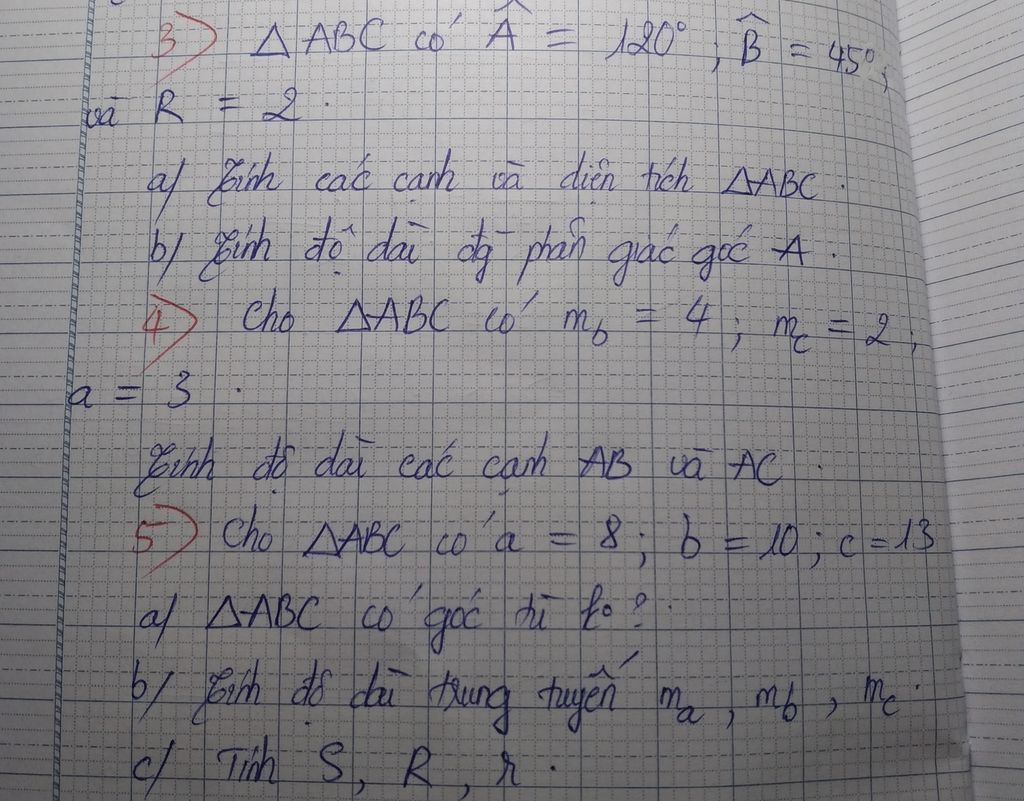 3) ΔABC có Â = 120°; B̂ = 45°;
và R = 2.
a/ Tính các cạnh và diện tích ΔABC.
b/ Tính độ dài đg phân giác góc A.
4) Cho ΔABC có m_b = 4; m_c = 2;
a = 3.
Tính độ dài các cạnh AB và AC.
5) Cho ΔABC có a = 8; b = 10; c = 13
a/ ΔABC có góc tù ko?
b/ Tính độ dài trung tuyến m_a, m_b, m_c.
c/ Tính S, R, r.